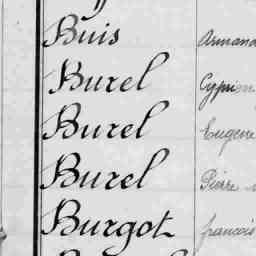 Buis Armand
Burel Cyprien
Burel Eugene
Burel Pierre
Burgot francois